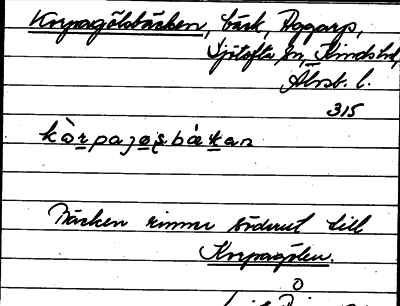 Korpagölsbäcken, bäck, Aggarp,
Sjötofta sn, Kinds hd,
Älvsb. l.
315
Bäcken rinner söderut till
Korpagölen.